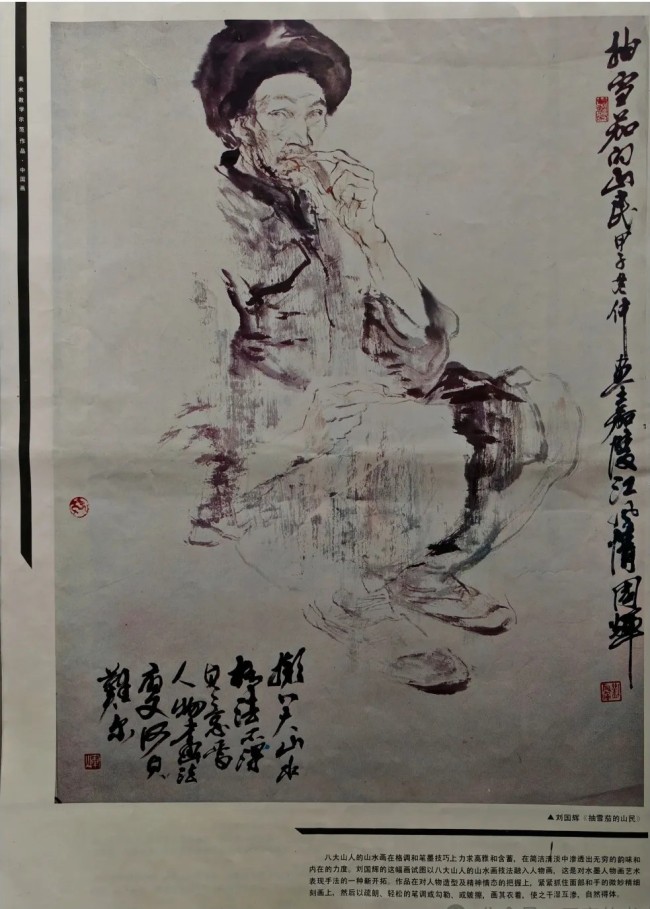 抽雪茄的山民 甲子 嘉陵江风情 国辉
美术教学示范作品·中国画
八大山水
法
人物画法
难尔
▲刘国辉《抽雪茄的山民》
八大山人的山水画在格调和笔墨技巧上力求高雅和含蓄，在简洁清淡中渗透出无穷的韵味和
内在的力度。刘国辉的这幅画试图以八大山人的山水画技法融入人物画，这是对水墨人物画艺术
表现手法的一种新开拓。作品在对人物造型及精神情态的把握上，紧紧抓住面部和手的微妙精细
刻画上，然后以疏朗、轻松的笔调或勾勒，或皴擦，画其衣着，使之干湿互渗，自然得体。